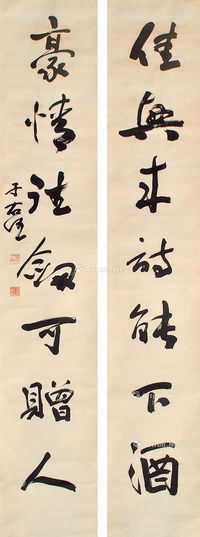 佳興来詩能下酒
豪情往劔可贈人
于右任